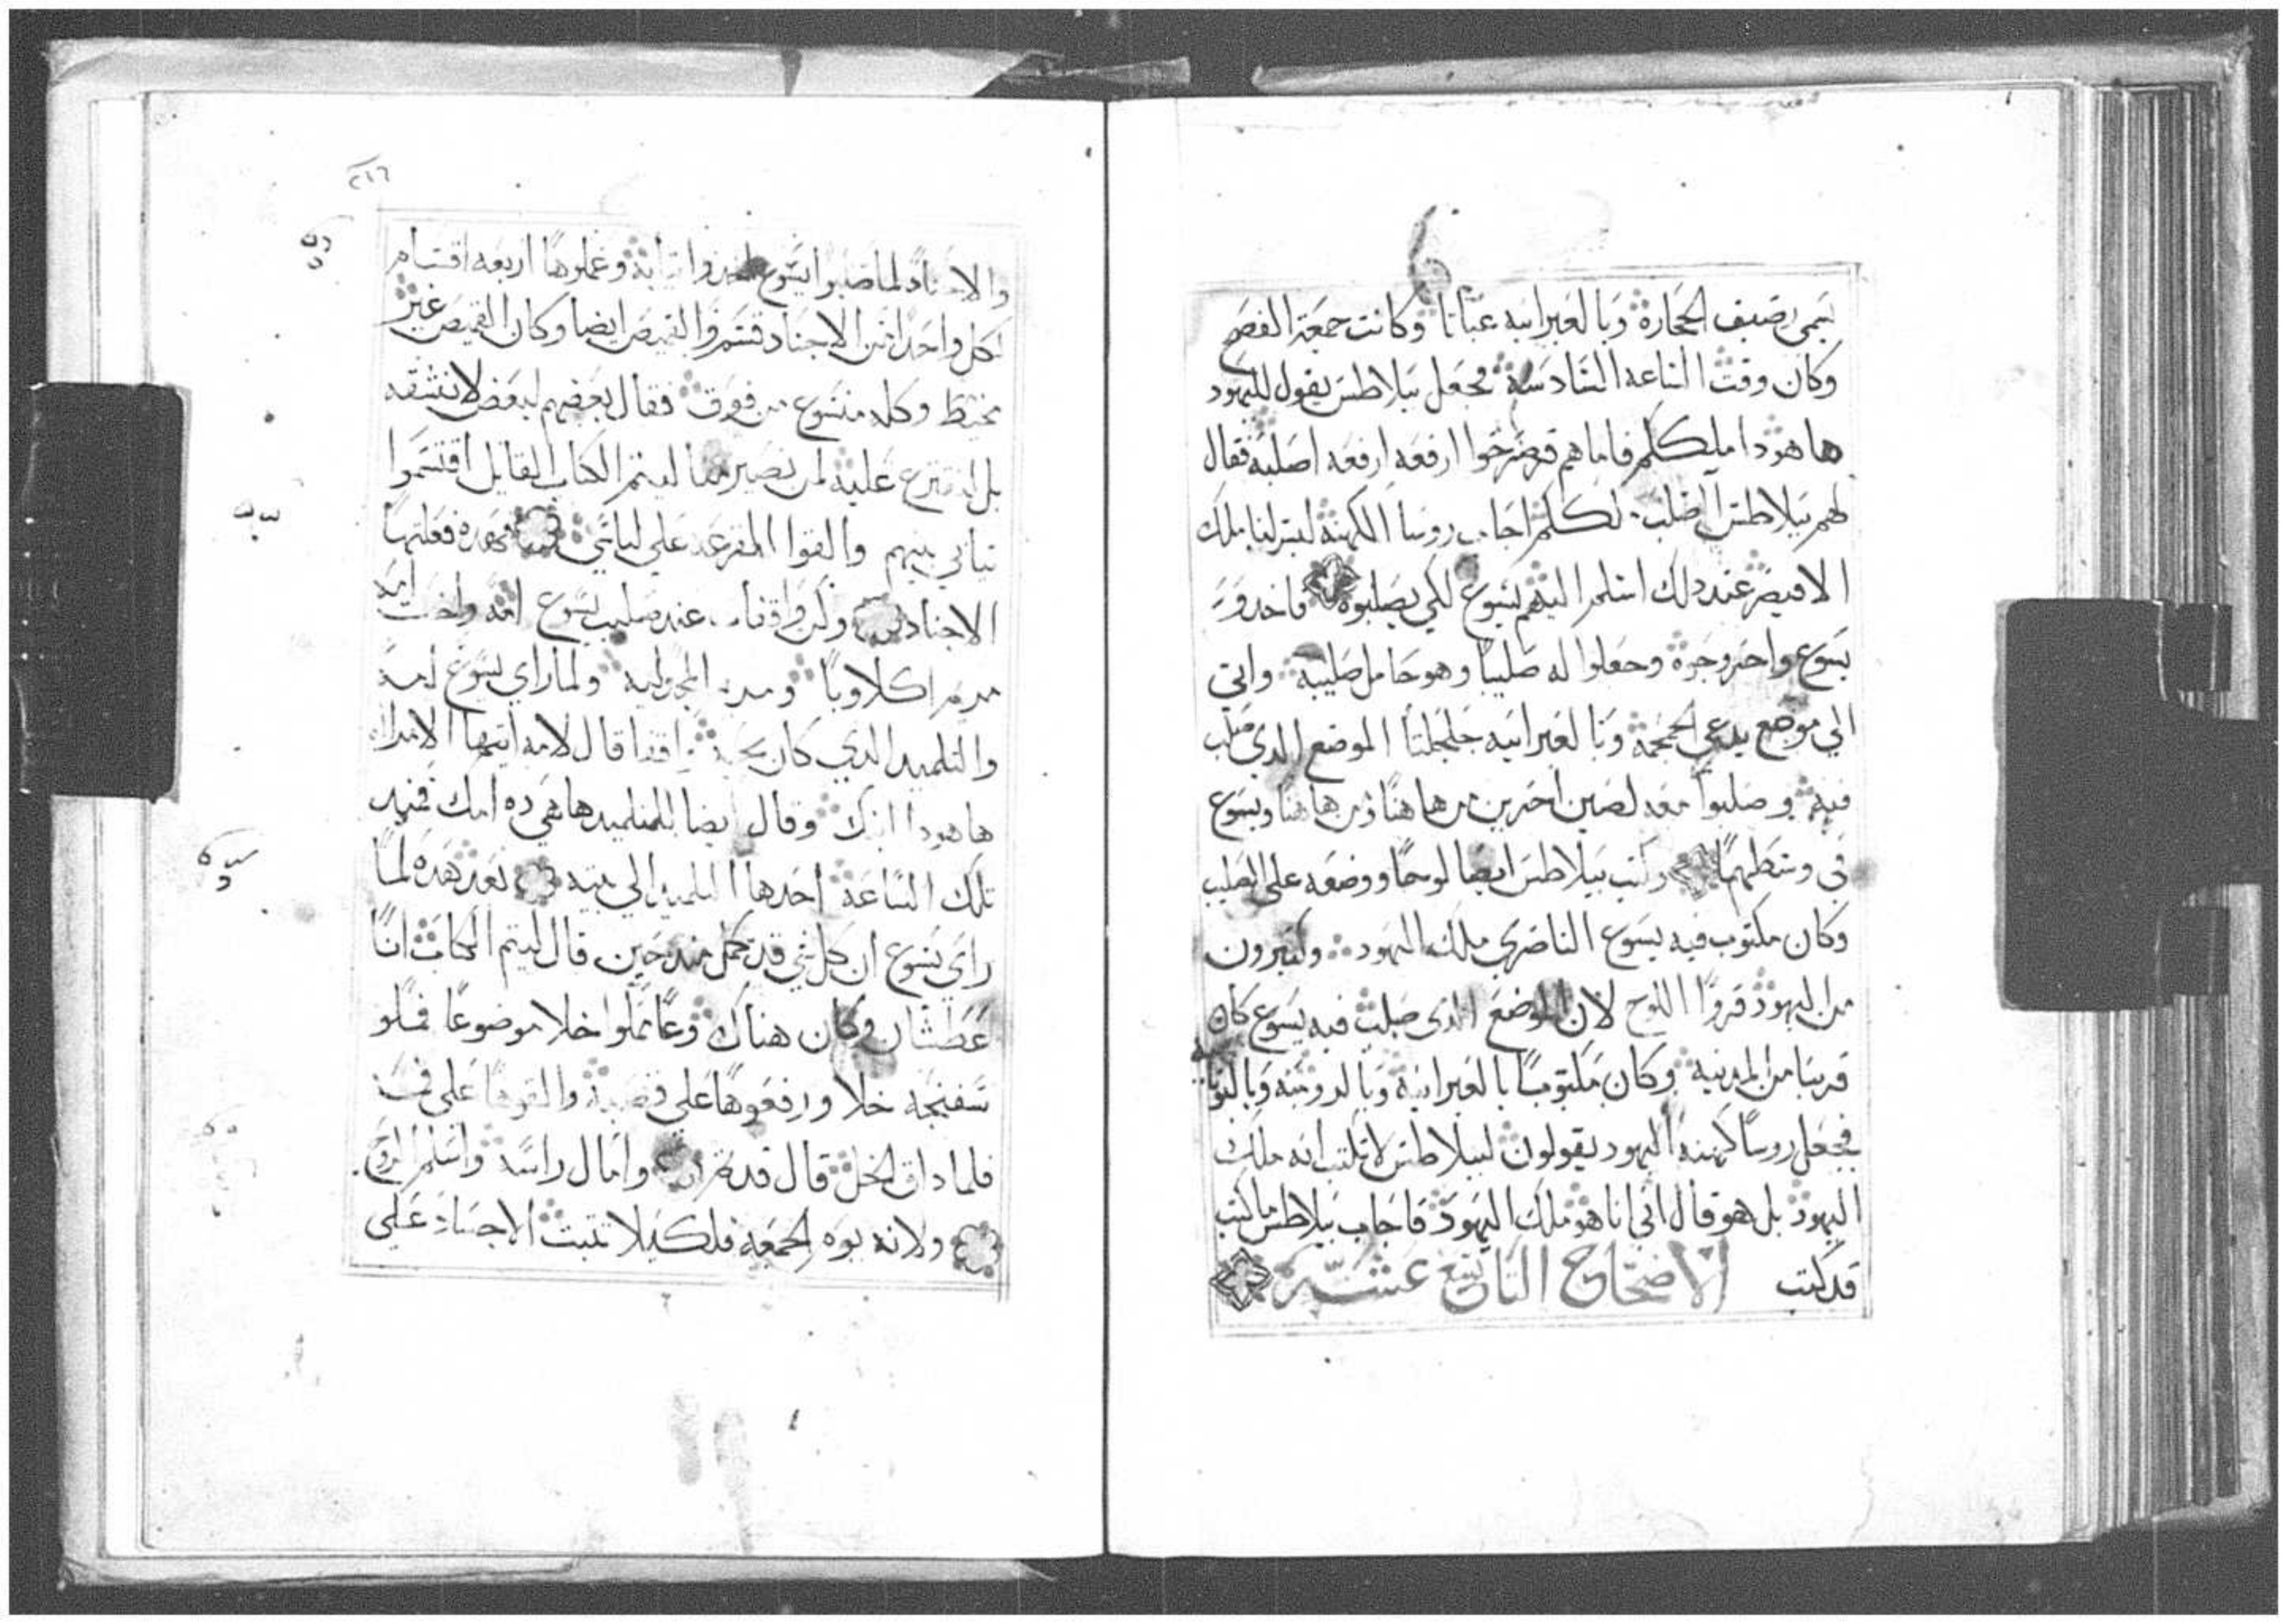 يسمى رصيف الحجارة وبالعبرانيه غباثا وكانت جمعة الفصح
وكان وقت الساعه السادسه فجعل بيلاطس يقول لليهود
هاهودا ملككم فاماهم فصرخوا ارفعه ارفعه اصلبه فقال
لهم بيلاطس اصلب ملككم اجابت روسا الكهنه ليس لنا ملك
الا قيصر عند دلك اسلمه اليهم يسوع لكي يصلبوه فاخدو
يسوع واخرجوه وحعلوا له صليبا وهو حامل صليبه واتى
الي موضع يدعي الجمجمة وبالعبرانيه جلجلتا الموضع الدي صلب
فيه وصلبوا معه لصين اخرين من هاهنا ومن هاهنا ويسوع
في وسطهما وكتب بيلاطس ايضا لوحا ووضعه على الصليب
وكان مكتوب فيه يسوع الناصري ملك اليهود وكتيرون
من اليهود قروا اللوح لان الموضع الدى صلب فيه يسوع كان
قريبا من المدينه وكان مكتوبا بالعبرانيه وبالرومية وباليونانيه
فجعل روسا كهنه اليهود يقولون لبيلاطس لا تكتب انه ملك
اليهود بل هو قال اني انا هو ملك اليهود فاجاب بيلاطس ما كتب
قد كتب الاصحاح التاسع عشر
٢١٦
والاجناد لما صلبوا يسوع اخدوا تيابه وعملوها اربعه اقسام
لكل واحد من الاجناد قسم والقميص ايضا وكان القميص غير
مخيط وكله منسوج من فوق فقال بعضهم لبعض لا نشقه
بل لنقترع عليه لمن يصير ليتم الكتاب القايل اقتسموا
تيابي بينهم والقوا القرعه علي لباسي فهده فعلتها
الاجناد وكن واقفات عند صليب يسوع امه واخت امه
مريم اكلاوبا ومريم المجدليه ولما راي يسوع امه
والتلميد الدي كان يحبه واقفا قال لامه ايتها الامراه
هاهودا ابنك وقال ايضا للتلميد هاهي ده امك فمن
تلك الساعة اخدها التلميد الي بيته بعد هده لما
راي يسوع ان كل شي قد كمل مند حين قال ليتم الكتاب انا
عطشان وكان هناك وعا مملوا خلا موضوعا فملو
سفنجه خلا ورفعوها علي قصبة والقوها على فيه
فلما داق الخل قال قد تم وامال راسه واسلم الروح
ولانه يوم الجمعه فلكيلا تتبت الاجساد علي